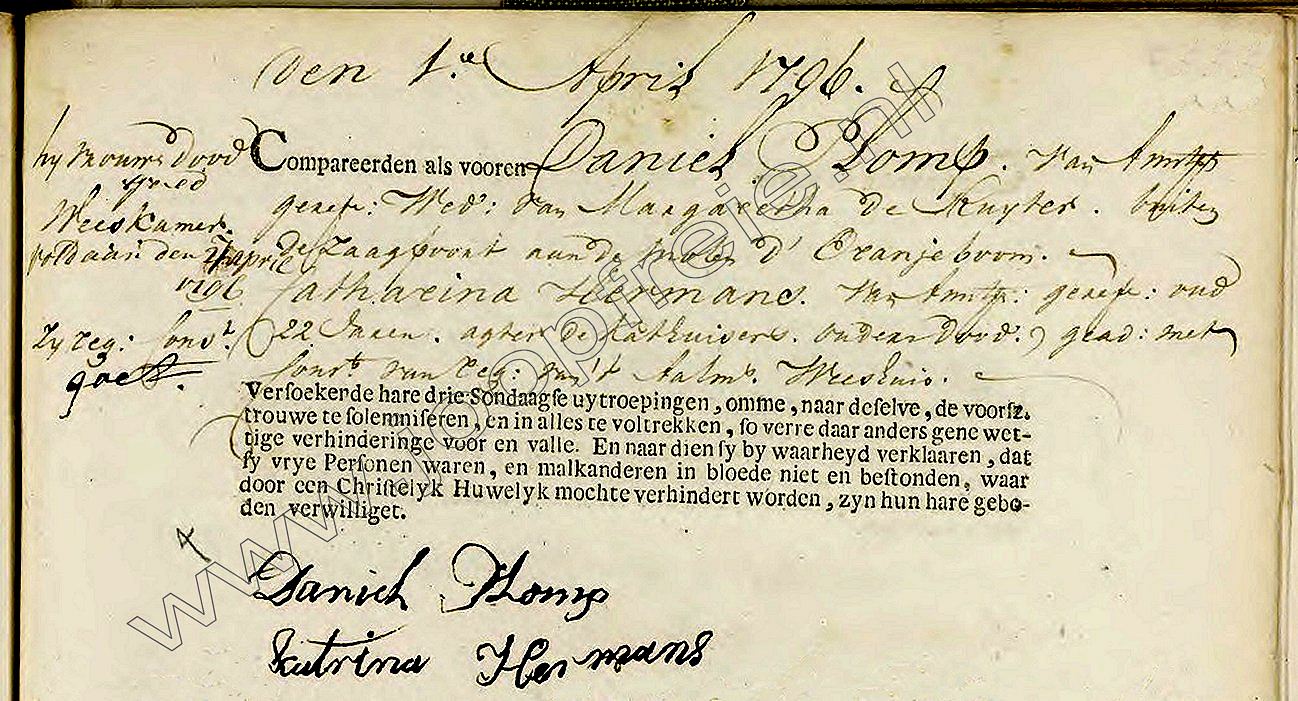 den 1.e April 1796.
hy vrouws dood
goed
Weeskamer
voldaan den
april
1796
Compareerden als vooren Daniel Plomp. van Amst
geref: Wed: van Margaretha de Kuyter. buiten
de Zaagpoort aan de molen d' Oranjeboom.
Catharina Hermans. van Amst: geref: oud
Zy reg: cons.t
22 Jaren. agter de Kathuisers. ouders dood. gead: met
goet.
cons.t van reg: van 't Aalm.s Weeshuis.
Versoekende hare drie Sondaagse uytroepingen, omme, naar deselve, de voorsz.
trouwe te solemniseren, en in alles te voltrekken, so verre daar anders gene wet-
tige verhinderinge voor en valle. En naar dien sy by waarheyd verklaaren, dat
sy vrye Personen waren, en malkanderen in bloede niet en bestonden, waar
door een Christelyk Huwelyk mochte verhindert worden, zyn hun hare gebo-
den verwilliget.
Daniel Plomp
Katrina Hermans